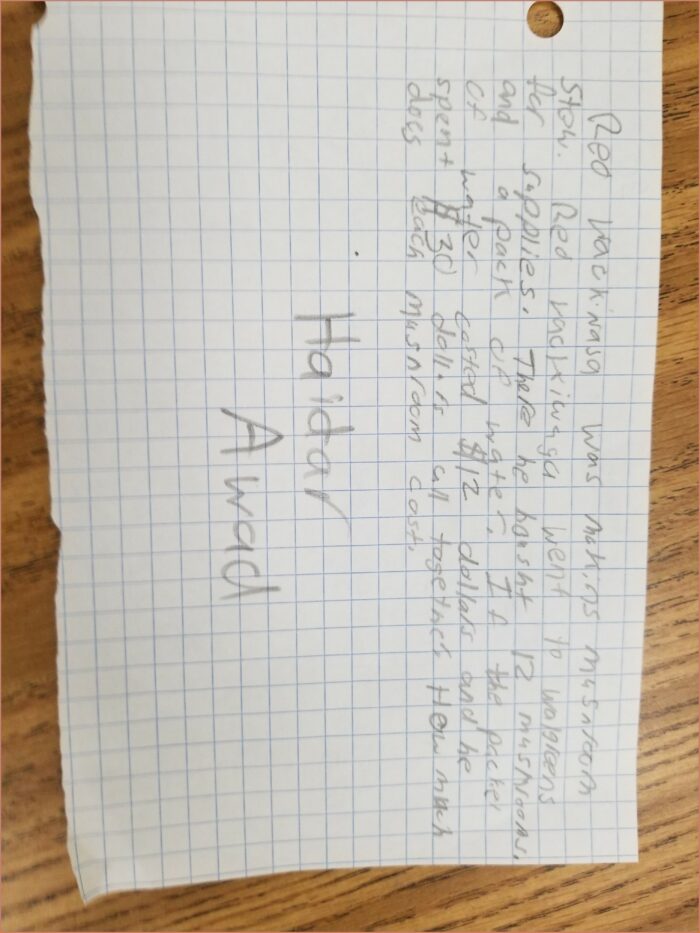 Red was making mushroom
Stew. Red went to walgreens
for supplies. There he bought 12 mushrooms.
and a pack of water. If the packet
of water costed $12 dollars and he
spent $30 dollars all together. How much
does each mushroom cost.
Haidar
Awad